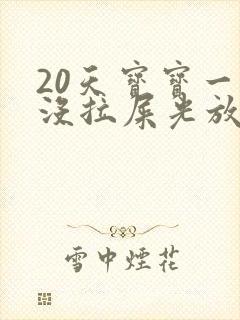 20天寶寶一
沒拉屎光放
雪中煙花